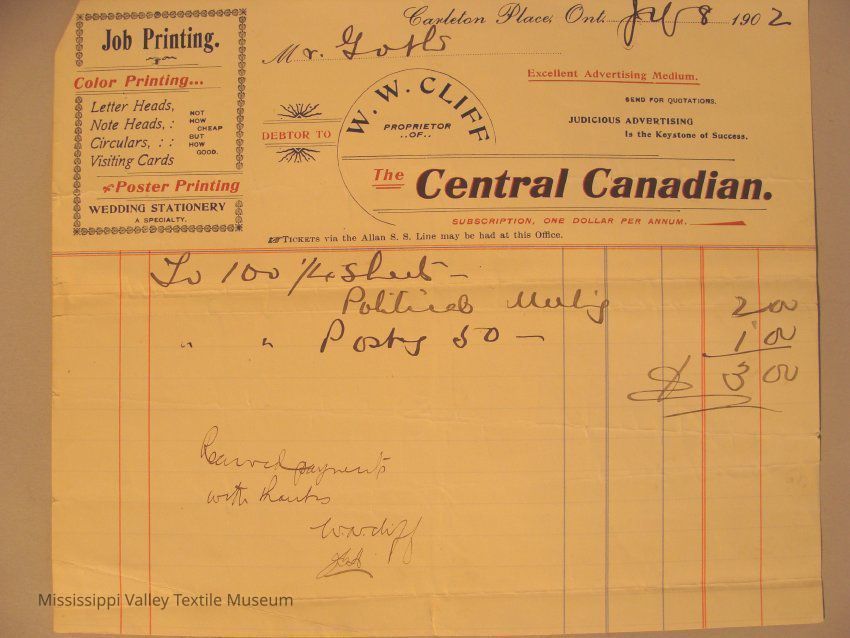 Job Printing.
Color Printing...
Letter Heads,
Note Heads, :
Circulars, : :
Visiting Cards
NOT
HOW
CHEAP
BUT
HOW
GOOD.
Poster Printing
WEDDING STATIONERY
A SPECIALTY.
Carleton Place, Ont. 8 1902
Mr.
DEBTOR TO
W. W. CLIFF
PROPRIETOR
..OF..
Excellent Advertising Medium.
SEND FOR QUOTATIONS.
JUDICIOUS ADVERTISING
Is the Keystone of Success.
The Central Canadian.
SUBSCRIPTION, ONE DOLLAR PER ANNUM.
TICKETS via the Allan S. S. Line may be had at this Office.
To 100 1/4 Sheet -
Political Meeting 2 00
" " Posting 50 - 1 00
$ 3 00
payment
with thanks
W.W. Cliff
Mississippi Valley Textile Museum